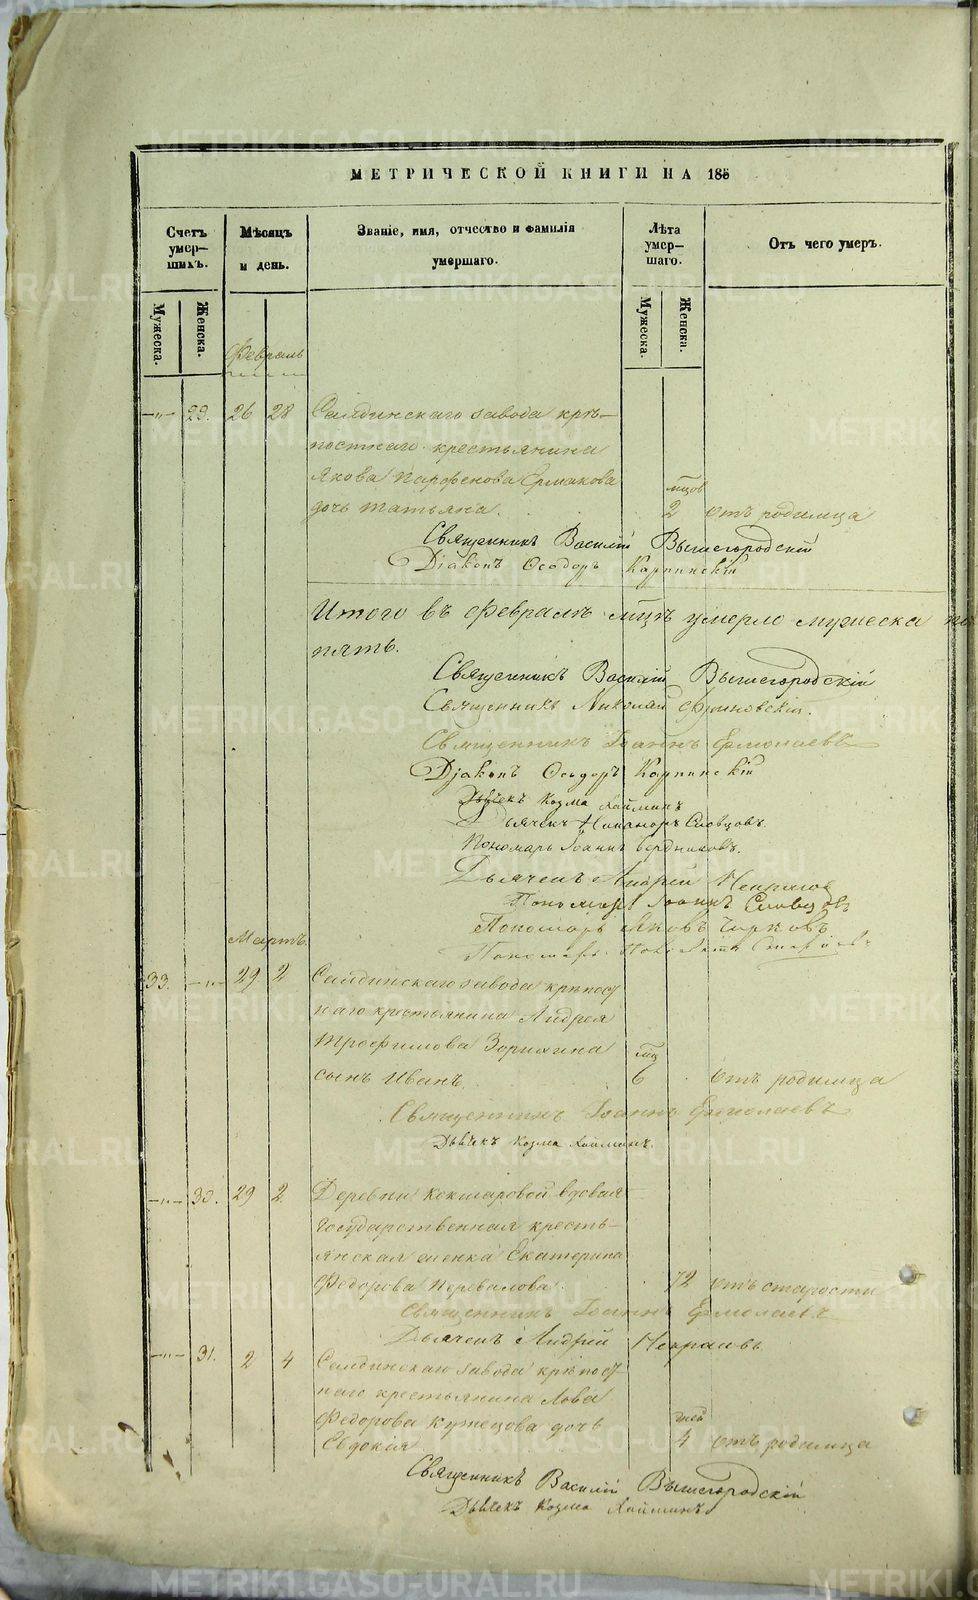 МЕТРИЧЕСКОЙ КНИГИ НА 185
Счетъ умер-шихъ. Мѣсяцъ и день. Званіе, имя, отчество и фамилія умершаго. Лѣта умер-шаго. Отъ чего умеръ.
Мужеска. Женска. Мужеска. Женска.
Февраль
—„— 29. 26 28 Салдинскаго завода крѣ-
постнаго крестьянина
Якова Парфенова Ермакова мцов
дочь Татьяна. 2 отъ родимца
Священникъ Василій Вышегородскій
Діаконъ Ѳеодоръ Карпинскій
Итого въ Февралѣ мцѣ умерло мужеска
пять.
Священникъ Василій Вышегородскій
Священникъ Николай
Священникъ Іоаннъ Ермолаевъ
Діаконъ Ѳеодоръ Карпинскій
Дьячекъ Козма
Дьячекъ Никаноръ Словцовъ.
Пономарь Іоаннъ Бердниковъ.
Дьячекъ Андрей Некрасов
Пономарь Іоаннъ Словцовъ
Пономарь Яковъ Чирковъ
Пономарь
Мартъ.
33. —„— 29 2 Салдинскаго завода крѣпост
наго крестьянина Андрея
Трофимова Зорихина мц
сынъ Иванъ. 6 отъ родимца
Священникъ Іоаннъ Ермолаевъ
Дьячекъ Козма
—„— 30. 29 2. Деревни Кокшаровой вдовая
государственная кресть-
янская женка Екатерина
Федорова Перевалова. 72 отъ старости
Священникъ Іоаннъ Ермолаевъ
Дьячекъ Андрей Некрасовъ
—„— 31. 2 4 Салдинскаго завода крѣпост
наго крестьянина Льва
Федорова Кузнецова дочь дней
Евдокія 4 отъ родимца
Священникъ Василій Вышегородскій
Дьячекъ Козма
METRIKI.GASO-URAL.RU